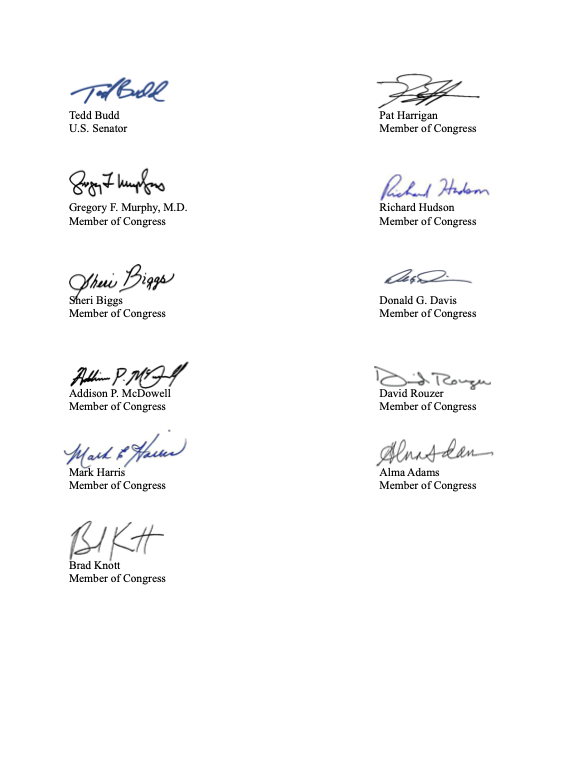 Ted Budd
Tedd Budd
U.S. Senator
Pat Harrigan
Member of Congress
Gregory F. Murphy, M.D.
Member of Congress
Richard Hudson
Richard Hudson
Member of Congress
Sheri Biggs
Sheri Biggs
Member of Congress
Donald G. Davis
Member of Congress
Addison P. McDowell
Member of Congress
David Rouzer
David Rouzer
Member of Congress
Mark E Harris
Mark Harris
Member of Congress
Alma Adams
Alma Adams
Member of Congress
Brad Knott
Member of Congress